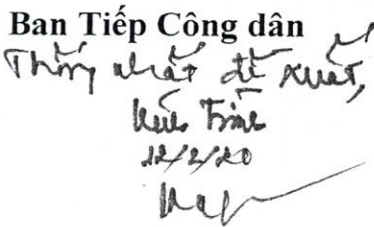 Ban Tiếp Công dân
Thống nhất đề xuất,
Trình
12/2/20